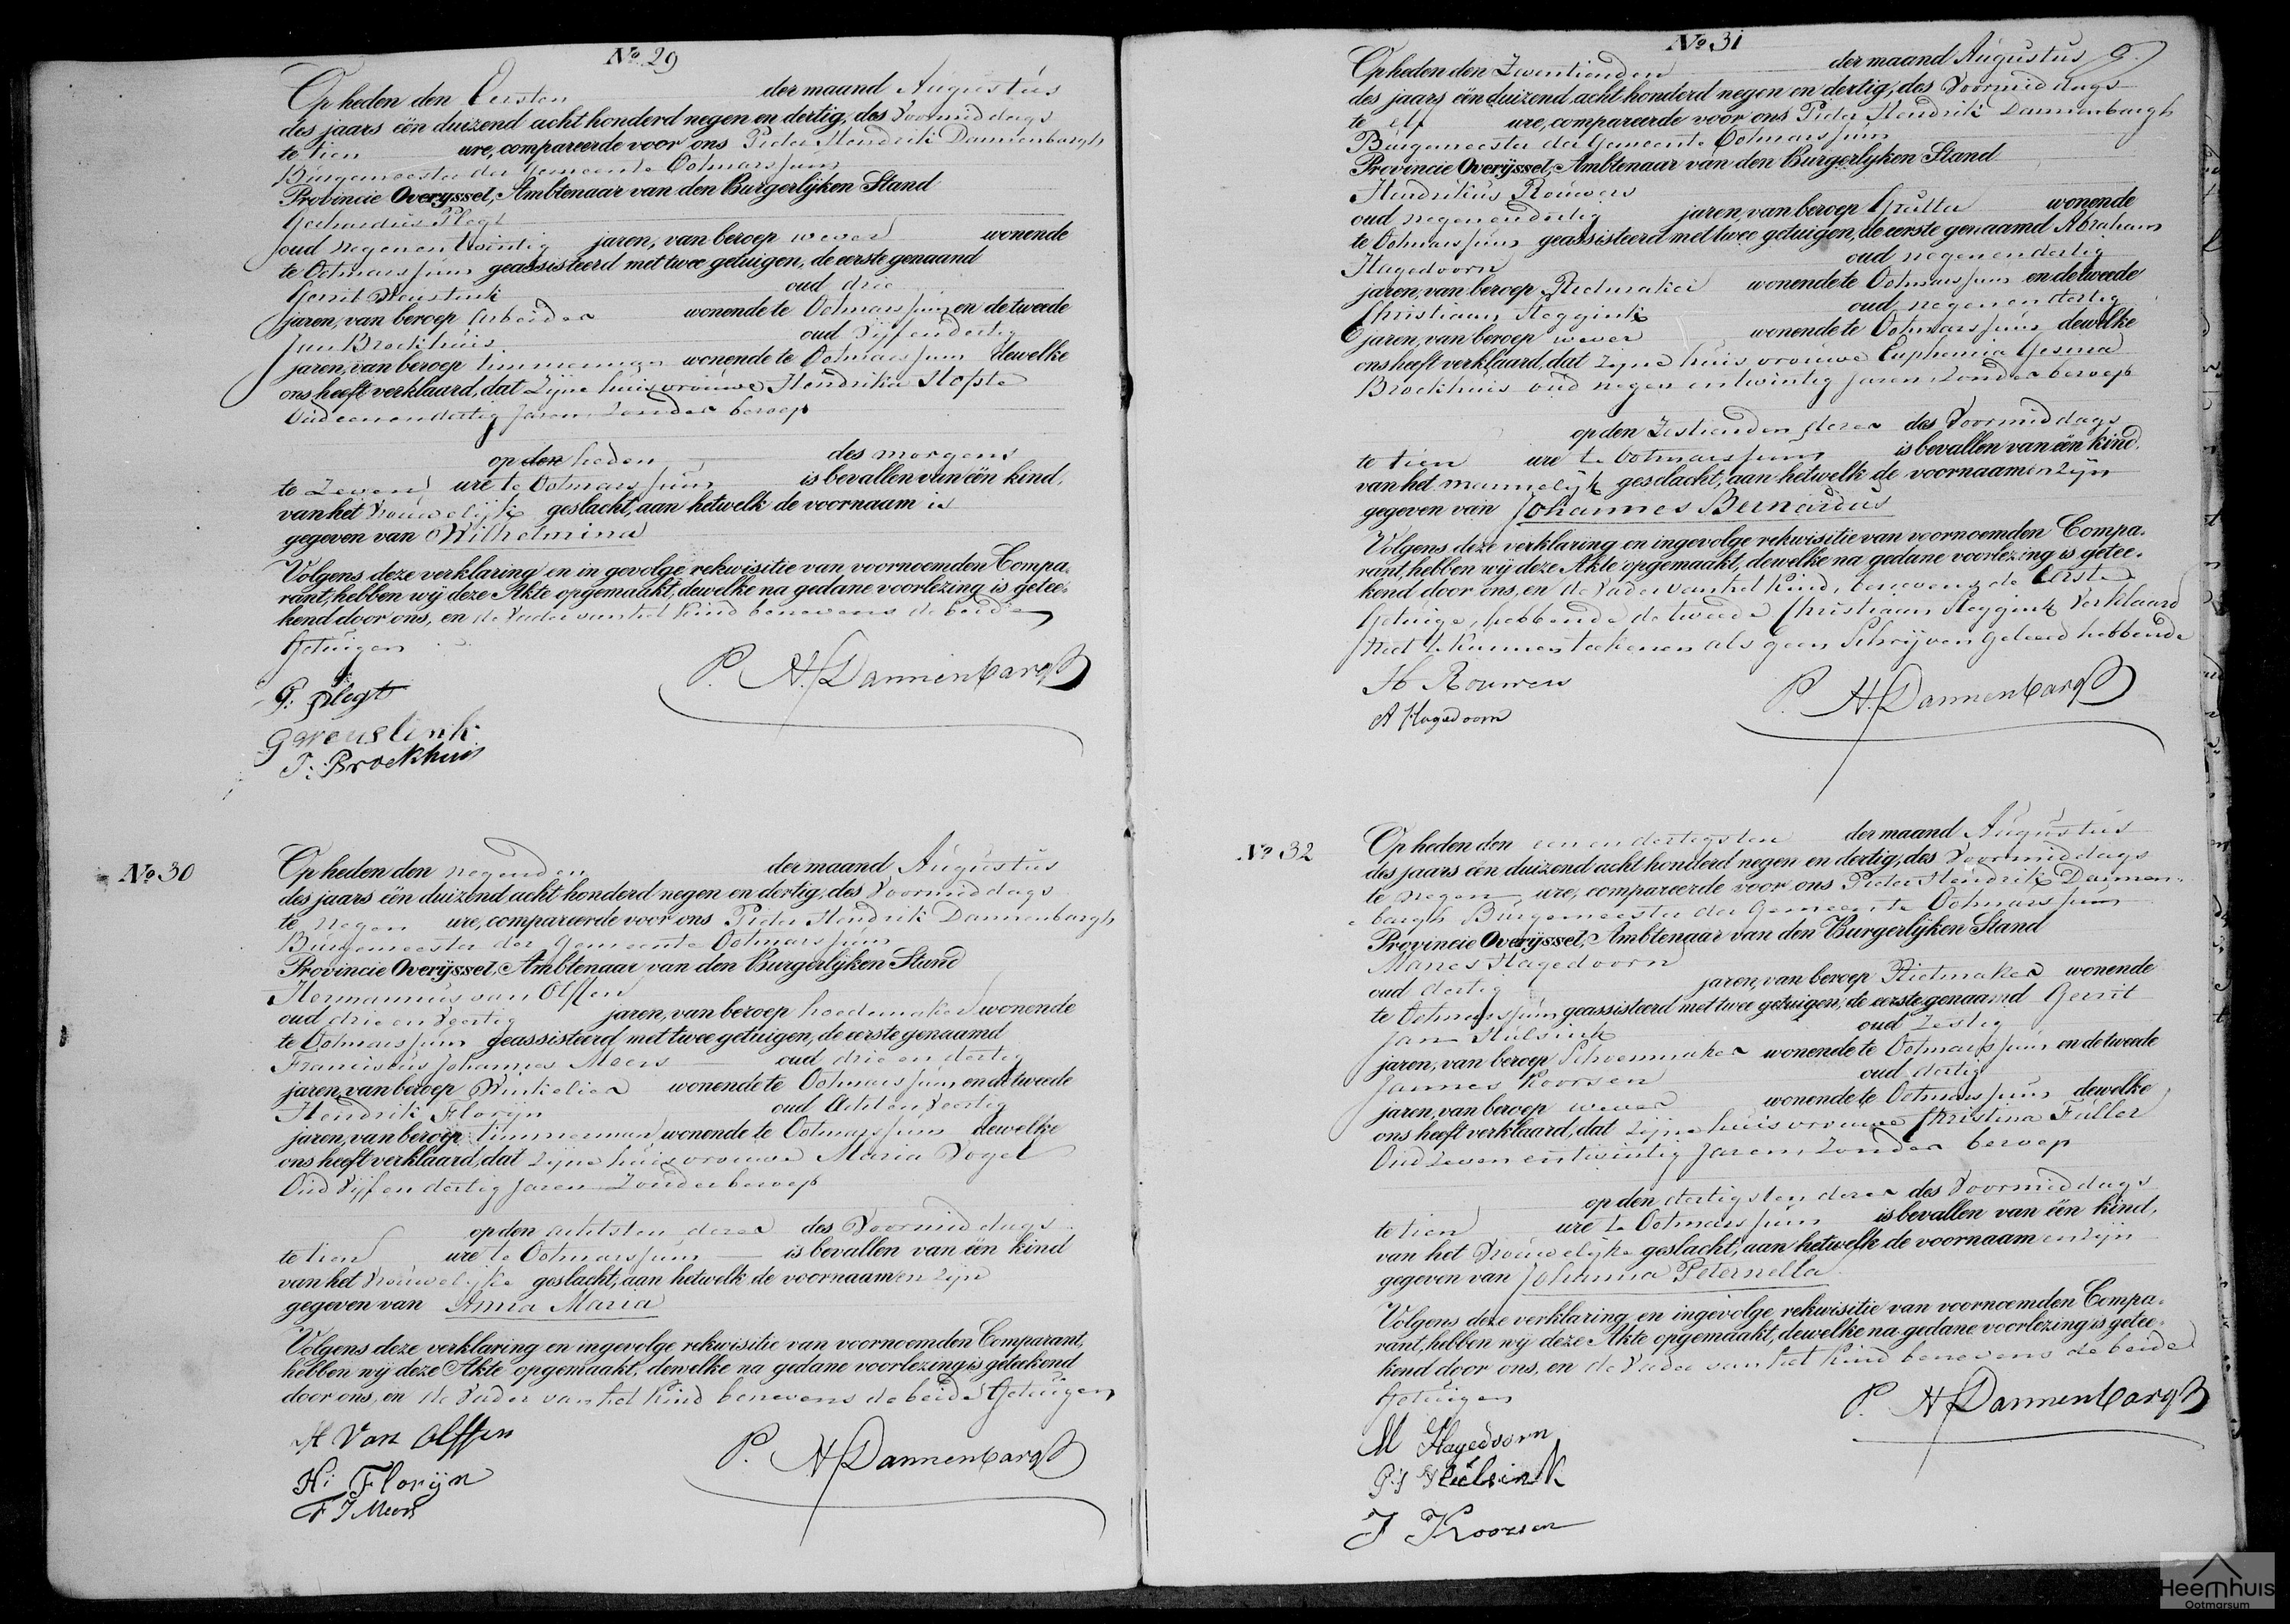 Nº 29
Op heden den Eersten der maand Augustus
des jaars één duizend acht honderd negen en dertig, des Voormiddags
te tien ure, compareerde voor ons Pieter Hendrik Dannenbargh
Burgemeester der Gemeente Ootmarssum
Provincie Overijssel, Ambtenaar van den Burgerlijken Stand
Gerhardus Plegt
oud negenentwintig jaren, van beroep wever wonende
te Ootmarssum geassisteerd met twee getuigen, de eerste genaamd
Gerrit oud drie
jaren, van beroep Arbeider wonende te Ootmarssum en de tweede
Jan Broekhuis oud Vijfendertig
jaren, van beroep timmerman wonende te Ootmarssum dewelke
ons heeft verklaard, dat Zijne huisvrouwe Hendrika Hofste
Oud eenendertig Jaren Zonder beroep
op den heden des morgens
te Zeven ure te Ootmarssum is bevallen van één kind,
van het Vrouwelijk geslacht, aan hetwelk de voornaam is
gegeven van Wilhelmina
Volgens deze verklaring en in gevolge rekwisitie van voornoemden Compa-
rant, hebben wij deze Akte opgemaakt, dewelke na gedane voorlezing is getee-
kend door ons, en de Vader van het Kind benevens de beide
Getuigen
P. H. Dannenbargh
G. Plegt
J. Broekhuis
Nº 30
Op heden den negenden der maand Augustus
des jaars één duizend acht honderd negen en dertig, des Voormiddags
te negen ure, compareerde voor ons Pieter Hendrik Dannenbargh
Burgemeester der Gemeente Ootmarssum
Provincie Overijssel, Ambtenaar van den Burgerlijken Stand
Hermannus van Olffen
oud drie en Veertig jaren, van beroep hoedemaker wonende
te Ootmarssum geassisteerd met twee getuigen, de eerste genaamd
Franciscus Johannes Meers oud drie en dertig
jaren, van beroep Winkelier wonende te Ootmarssum en de tweede
Hendrik Florijn oud Achtenveertig
jaren, van beroep timmerman wonende te Ootmarssum dewelke
ons heeft verklaard, dat zijne huisvrouwe Maria Vogel
Oud Vijf en dertig Jaren Zonder beroep
op den achtsten dezer des Voormiddags
te tien ure te Ootmarssum is bevallen van één kind
van het Vrouwelijke geslacht, aan hetwelk de voornaamen zijn
gegeven van Anna Maria
Volgens deze verklaring en ingevolge rekwisitie van voornoemden Comparant,
hebben wij deze Akte opgemaakt, dewelke na gedane voorlezing is geteekend
door ons, en de Vader van het Kind benevens de beide Getuigen
H Van Olffen
P. H. Dannenbargh
H: Florijn
F J Meers
Nº 31
Op heden den Zeventienden der maand Augustus
des jaars één duizend acht honderd negen en dertig, des Voormiddags
te elf ure, compareerde voor ons Pieter Hendrik Dannenbargh
Burgemeester der Gemeente Ootmarssum
Provincie Overijssel, Ambtenaar van den Burgerlijken Stand
Hendrikus Rouwers
oud negenendertig jaren, van beroep wonende
te Ootmarssum geassisteerd met twee getuigen, de eerste genaamd Abraham
Hagedoorn oud negenendertig
jaren, van beroep Rietmaker wonende te Ootmarssum en de tweede
Christiaan Steggink oud negenendertig
jaren, van beroep wever wonende te Ootmarssum dewelke
ons heeft verklaard, dat zijne huisvrouwe Euphemia Gesina
Broekhuis oud negen entwintig Jaren Zonder beroep
op den Zestienden dezer des Voormiddags
te tien ure te Ootmarssum is bevallen van één kind.
van het mannelijk geslacht, aan hetwelk de voornaamen zijn
gegeven van Johannes Bernardus
Volgens deze verklaring en ingevolge rekwisitie van voornoemden Compa-
rant, hebben wij deze Akte opgemaakt, dewelke na gedane voorlezing is getee-
kend door ons, en de Vader van het Kind, benevens de Eerste
Getuige, hebbende de tweede Christiaan Steggink Verklaard
niet te kunnen teekenen als geen Schrijven geleerd hebbende
H Rouwers
P. H. Dannenbargh
A Hagedoorn
Nº 32
Op heden den een en dertigsten der maand Augustus
des jaars één duizend acht honderd negen en dertig, des Voormiddags
te negen ure, compareerde voor ons Pieter Hendrik Dannen-
bargh Burgemeester der Gemeente Ootmarssum
Provincie Overijssel, Ambtenaar van den Burgerlijken Stand
Manes Hagedoorn
oud dertig jaren, van beroep Rietmaker wonende
te Ootmarssum geassisteerd met twee getuigen, de eerste genaamd Gerrit
Jan Hulsink oud Zestig
jaren, van beroep Schoenmaker wonende te Ootmarssum en de tweede
Jannes Koorsen oud dertig
jaren, van beroep wever wonende te Ootmarssum dewelke
ons heeft verklaard, dat zijne huisvrouwe Christina Fuller
Oud Zeven entwintig Jaren, Zonder beroep
op den dertigsten dezer des Voormiddags
te tien ure te Ootmarssum is bevallen van één kind,
van het Vrouwelijke geslacht, aan hetwelk de voornaamen zijn
gegeven van Johanna Peternella
Volgens deze verklaring en ingevolge rekwisitie van voornoemden Compa-
rant, hebben wij deze Akte opgemaakt, dewelke na gedane voorlezing is getee-
kend door ons, en de Vader van het Kind benevens de beide
Getuigen
P. H. Dannenbargh
M Hagedoorn
G:J Hulsink
J Koorsen
Heemhuis
Ootmarsum